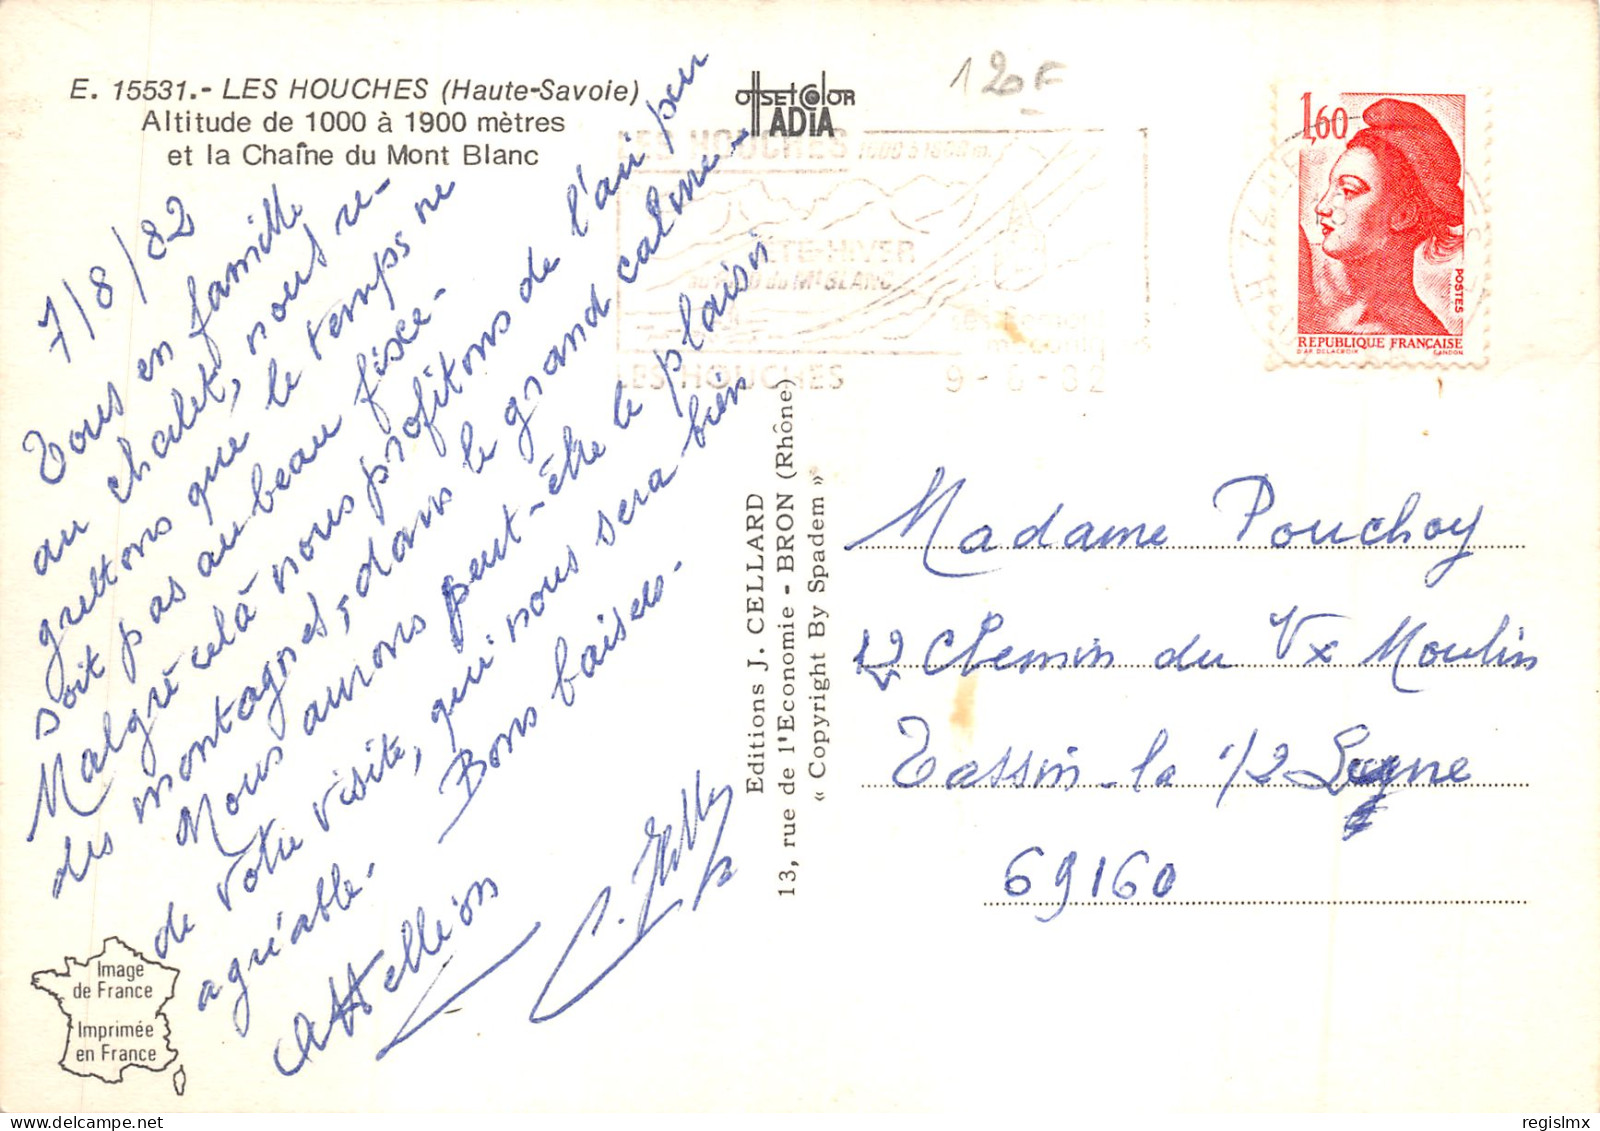 E. 15531.- LES HOUCHES (Haute-Savoie)
Altitude de 1000 à 1900 mètres
et la Chaîne du Mont Blanc
OffSET COlOR
IADIA
120F
LES HOUCHES 1000 à 1900 m.
ÉTÉ-HIVER
au pied du Mt BLANC
LES HOUCHES
9-8-82
1,60
POSTES
REPUBLIQUE FRANÇAISE
D'AP. DELACROIX GANDON
7/8/82
Tous en famille
au chalet, nous re-
grettons que le temps ne
soit pas au beau fisce-
Malgré celà nous profitons de l'air pur
des montagnes, dans le grand calme-
Nous aurons peut-être le plaisir
de votre visite, qui nous sera bien
agréable. Bons baisers.
Editions J. CELLARD
13, rue de l'Economie - BRON (Rhône)
« Copyright By Spadem »
Madame Pouchoy
12 Chemin du Vx Moulin
Tassin-la 1/2 Lune
69160
Image
de France
Imprimée
en France
regislmx